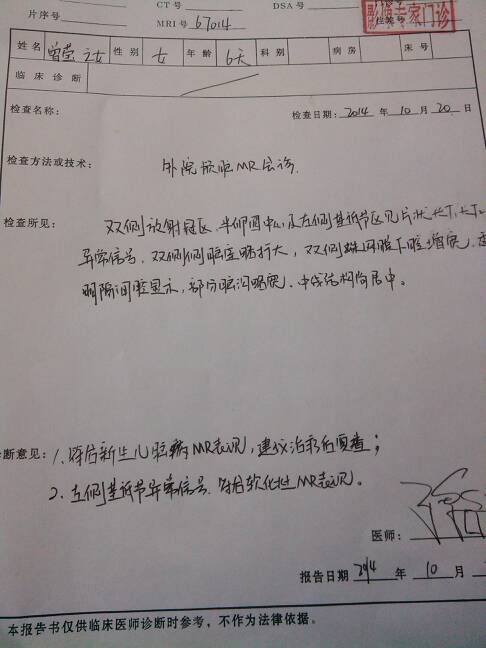 CT号 DSA号
片序号 MRI号 67014 住院号
影像专家门诊
姓名 曾莹之女 性别 女 年龄 6天 科别 病房 床号
临床诊断
检查名称： 检查日期：2014 年 10 月 20 日
检查方法或技术： 外院颅脑MR会诊.
检查所见： 双侧放射冠区、半卵圆中心及左侧基底节区见片状长T1长T2
异常信号，双侧侧脑室略扩大，双侧蛛网膜下腔增宽，透
明隔间腔显示，部分脑沟略宽，中线结构尚居中。
断意见： 1、符合新生儿脑病MR表现，建议治疗后复查；
2、左侧基底节异常信号，符合软化灶MR表现。
医师：
报告日期 2014 年 10 月
本报告书仅供临床医师诊断时参考，不作为法律依据。